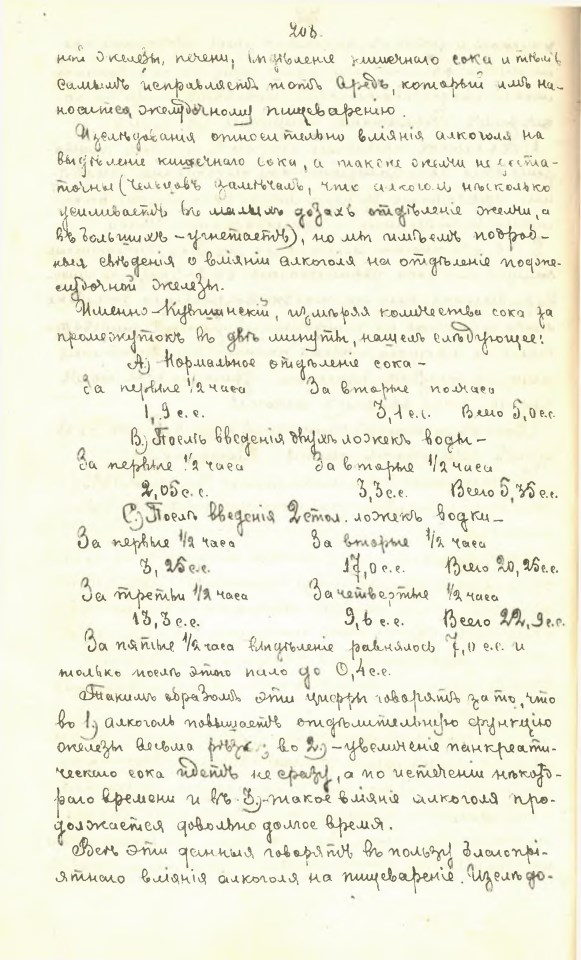 208.
ной железы, печени, отдѣленіе кишечнаго сока и тѣмъ
самымъ исправляетъ тотъ вредъ, который имъ на-
носится желудочному пищеваренію.
Изслѣдованія относительно вліянія алкоголя на
выдѣленіе кишечнаго сока, а также желчи не доста-
точны (Чельцовъ замѣчалъ, что алкоголь нѣсколько
усиливаетъ въ малыхъ дозахъ отдѣленіе желчи, а
въ большихъ – угнетаетъ), но мы имѣемъ подроб-
ныя свѣденія о вліяніи алкоголя на отдѣленіе подже-
лудочной железы.
Именно – Кувшинскій, измѣряя количества сока за
промежутокъ въ двѣ минуты, нашелъ слѣдующее:
А) Нормальное отдѣленіе сока –
За первые 1/2 часа За вторые полчаса
1,9 с.с. 3,1 с.с. Всего 5,0 с.с.
В) Послѣ введенія двухъ ложекъ воды –
За первые 1/2 часа За вторые 1/2 часа
2,05 с.с. 3,3 с.с. Всего 5,35 с.с.
С) Послѣ введенія 2 стол. ложекъ водки –
За первые 1/2 часа За вторые 1/2 часа
3,25 с.с. 17,0 с.с. Всего 20,25 с.с.
За третьи 1/2 часа За четвертые 1/2 часа
13,3 с.с. 9,6 с.с. Всего 22,9 с.с.
За пятые 1/2 часа выдѣленіе равнялось 7,0 с.с. и
только послѣ этого пало до 0,4 с.с.
Такимъ образомъ эти цифры говорятъ за то, что
во 1) алкоголь повышаетъ отдѣлительную функцію
железы весьма рѣзко; во 2) – увеличеніе панкреати-
ческаго сока идетъ не сразу, а по истеченіи нѣкото-
раго времени и въ 3) – такое вліяніе алкоголя про-
должается довольно долгое время.
Всѣ эти данныя говорятъ въ пользу благопрі-
ятнаго вліянія алкоголя на пищевареніе. Изслѣдо-